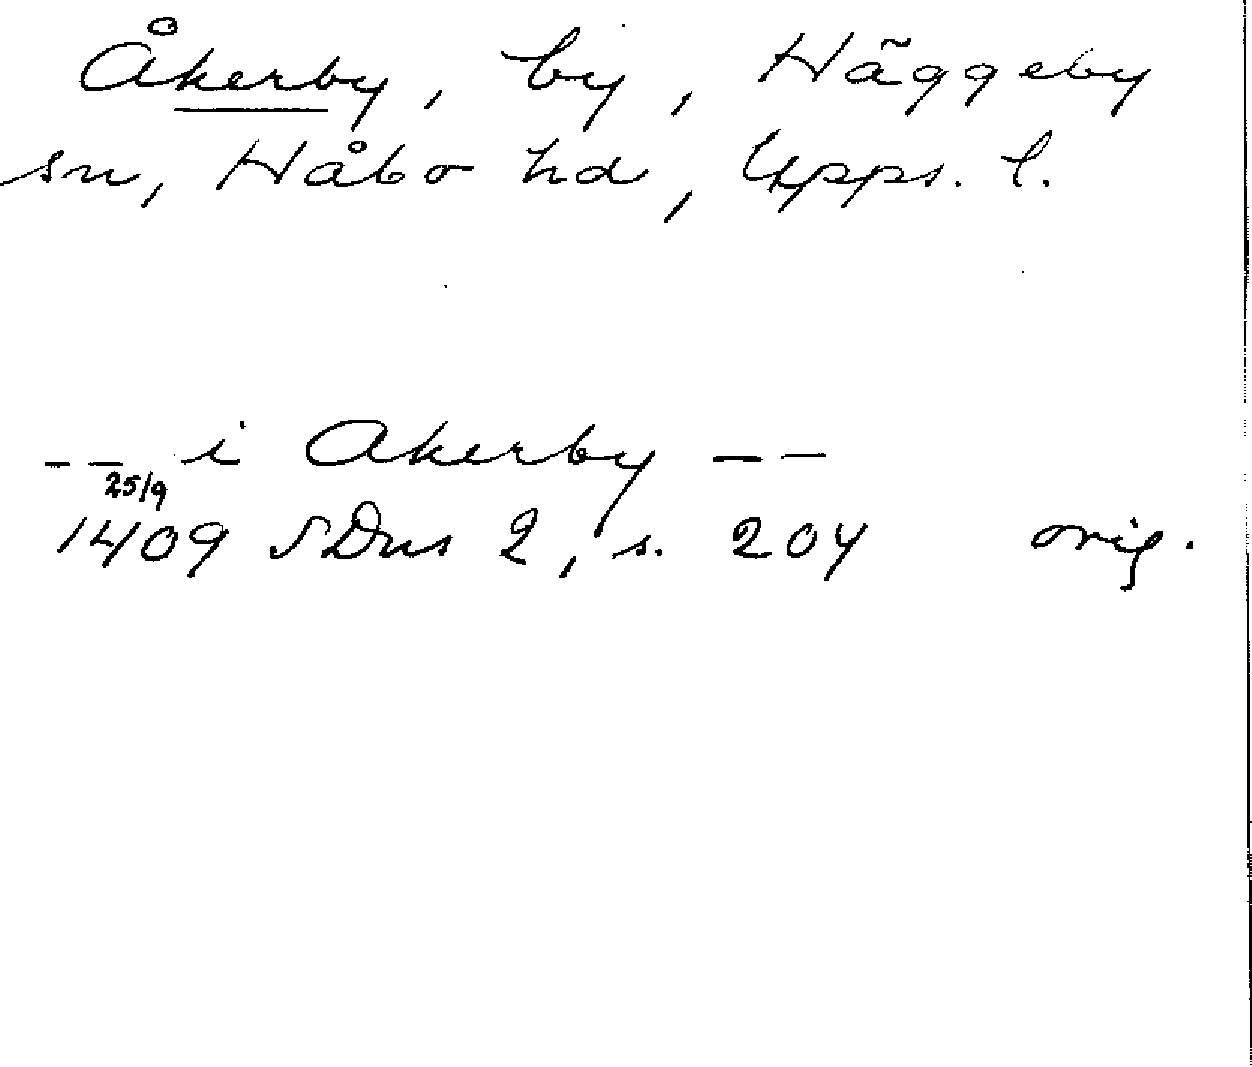 Åkerby, by, Häggeby
sn, Håbo hd, Upps. l.
-- i Akerby --
25/9
1409 SDns 2, s. 204 orig.